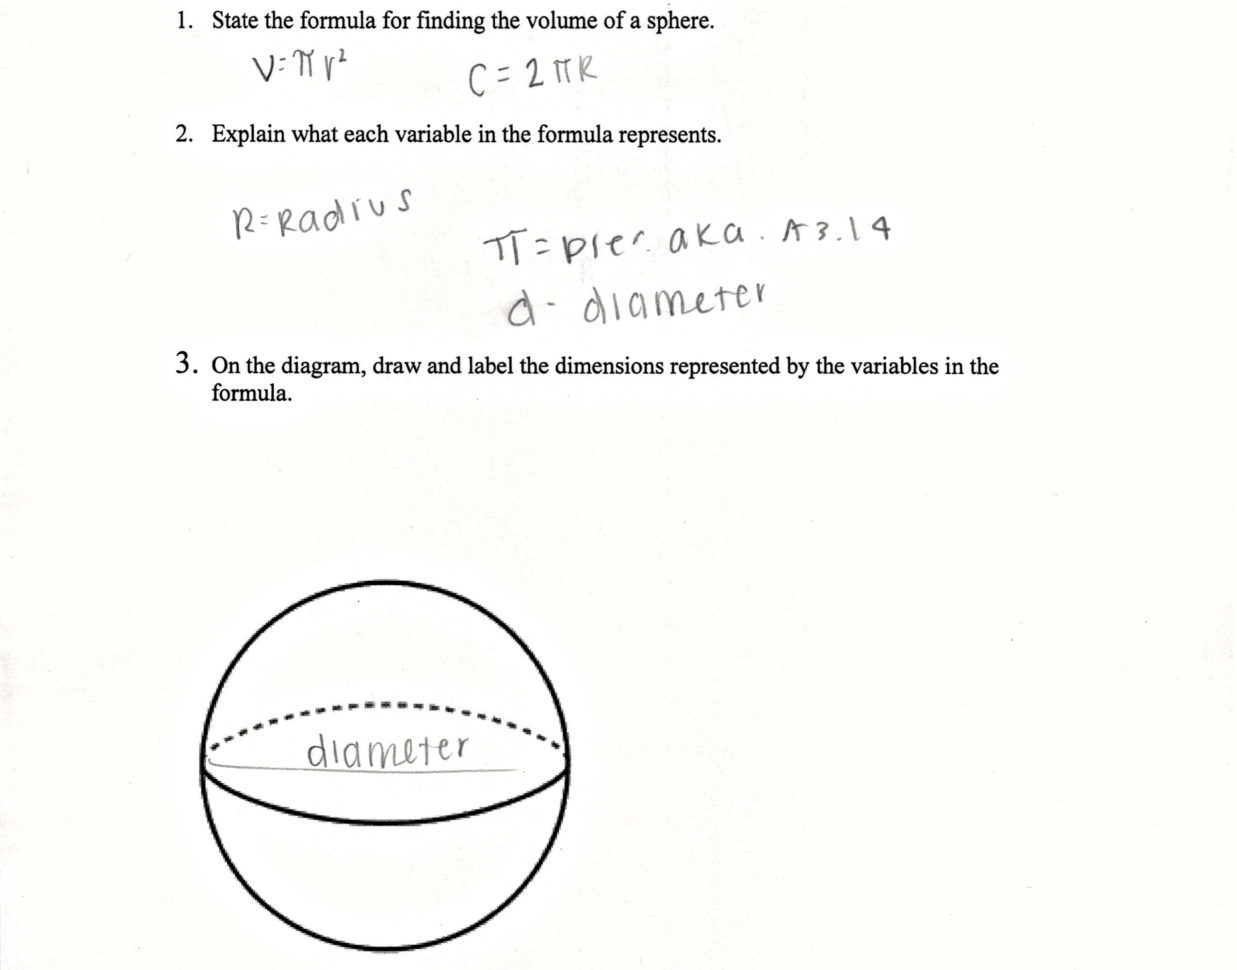 1. State the formula for finding the volume of a sphere.
V=πr² C=2πR
2. Explain what each variable in the formula represents.
R=Radius
π=pier aka. 3.14
d- diameter
3. On the diagram, draw and label the dimensions represented by the variables in the
formula.
diameter